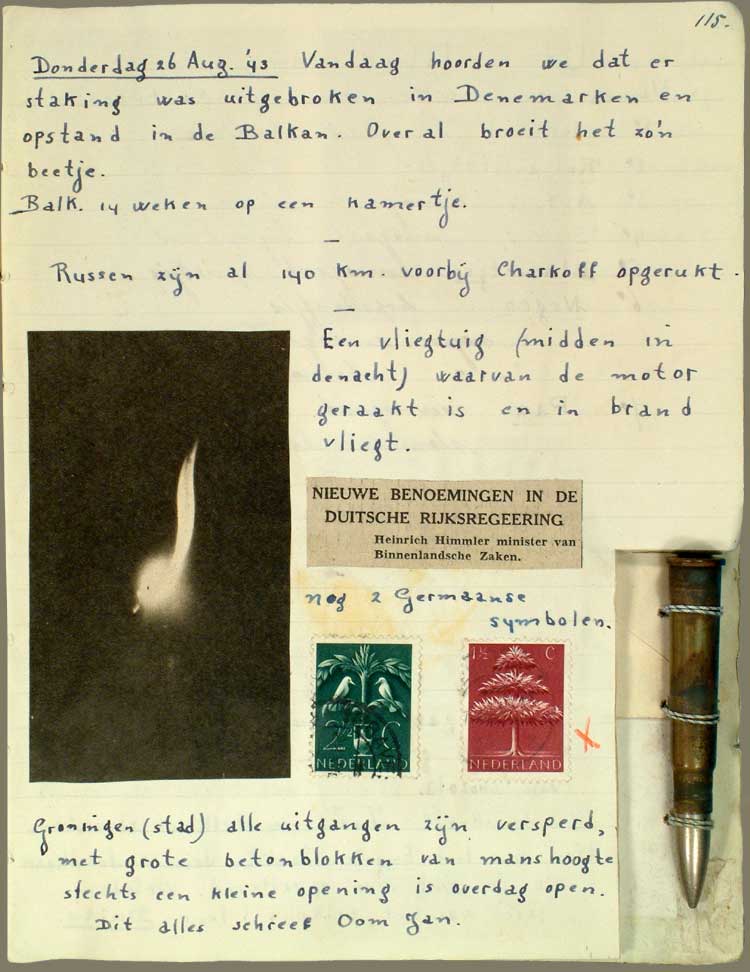 115.
Donderdag 26 Aug. '43 Vandaag hoorden we dat er
staking was uitgebroken in Denemarken en
opstand in de Balkan. Overal broeit het zo'n
beetje.
Balk. 14 weken op een kamertje.
—
Russen zijn al 140 km. voorbij Charkoff opgerukt.
—
Een vliegtuig (midden in
denacht) waarvan de motor
geraakt is en in brand
vliegt.
NIEUWE BENOEMINGEN IN DE
DUITSCHE RIJKSREGEERING
Heinrich Himmler minister van
Binnenlandsche Zaken.
nog 2 Germaanse
symbolen.
2½ C
NEDERLAND
1½ C
NEDERLAND
Groningen (stad) alle uitgangen zijn versperd,
met grote betonblokken van manshoogte
slechts een kleine opening is overdag open.
Dit alles schreef Oom Jan.